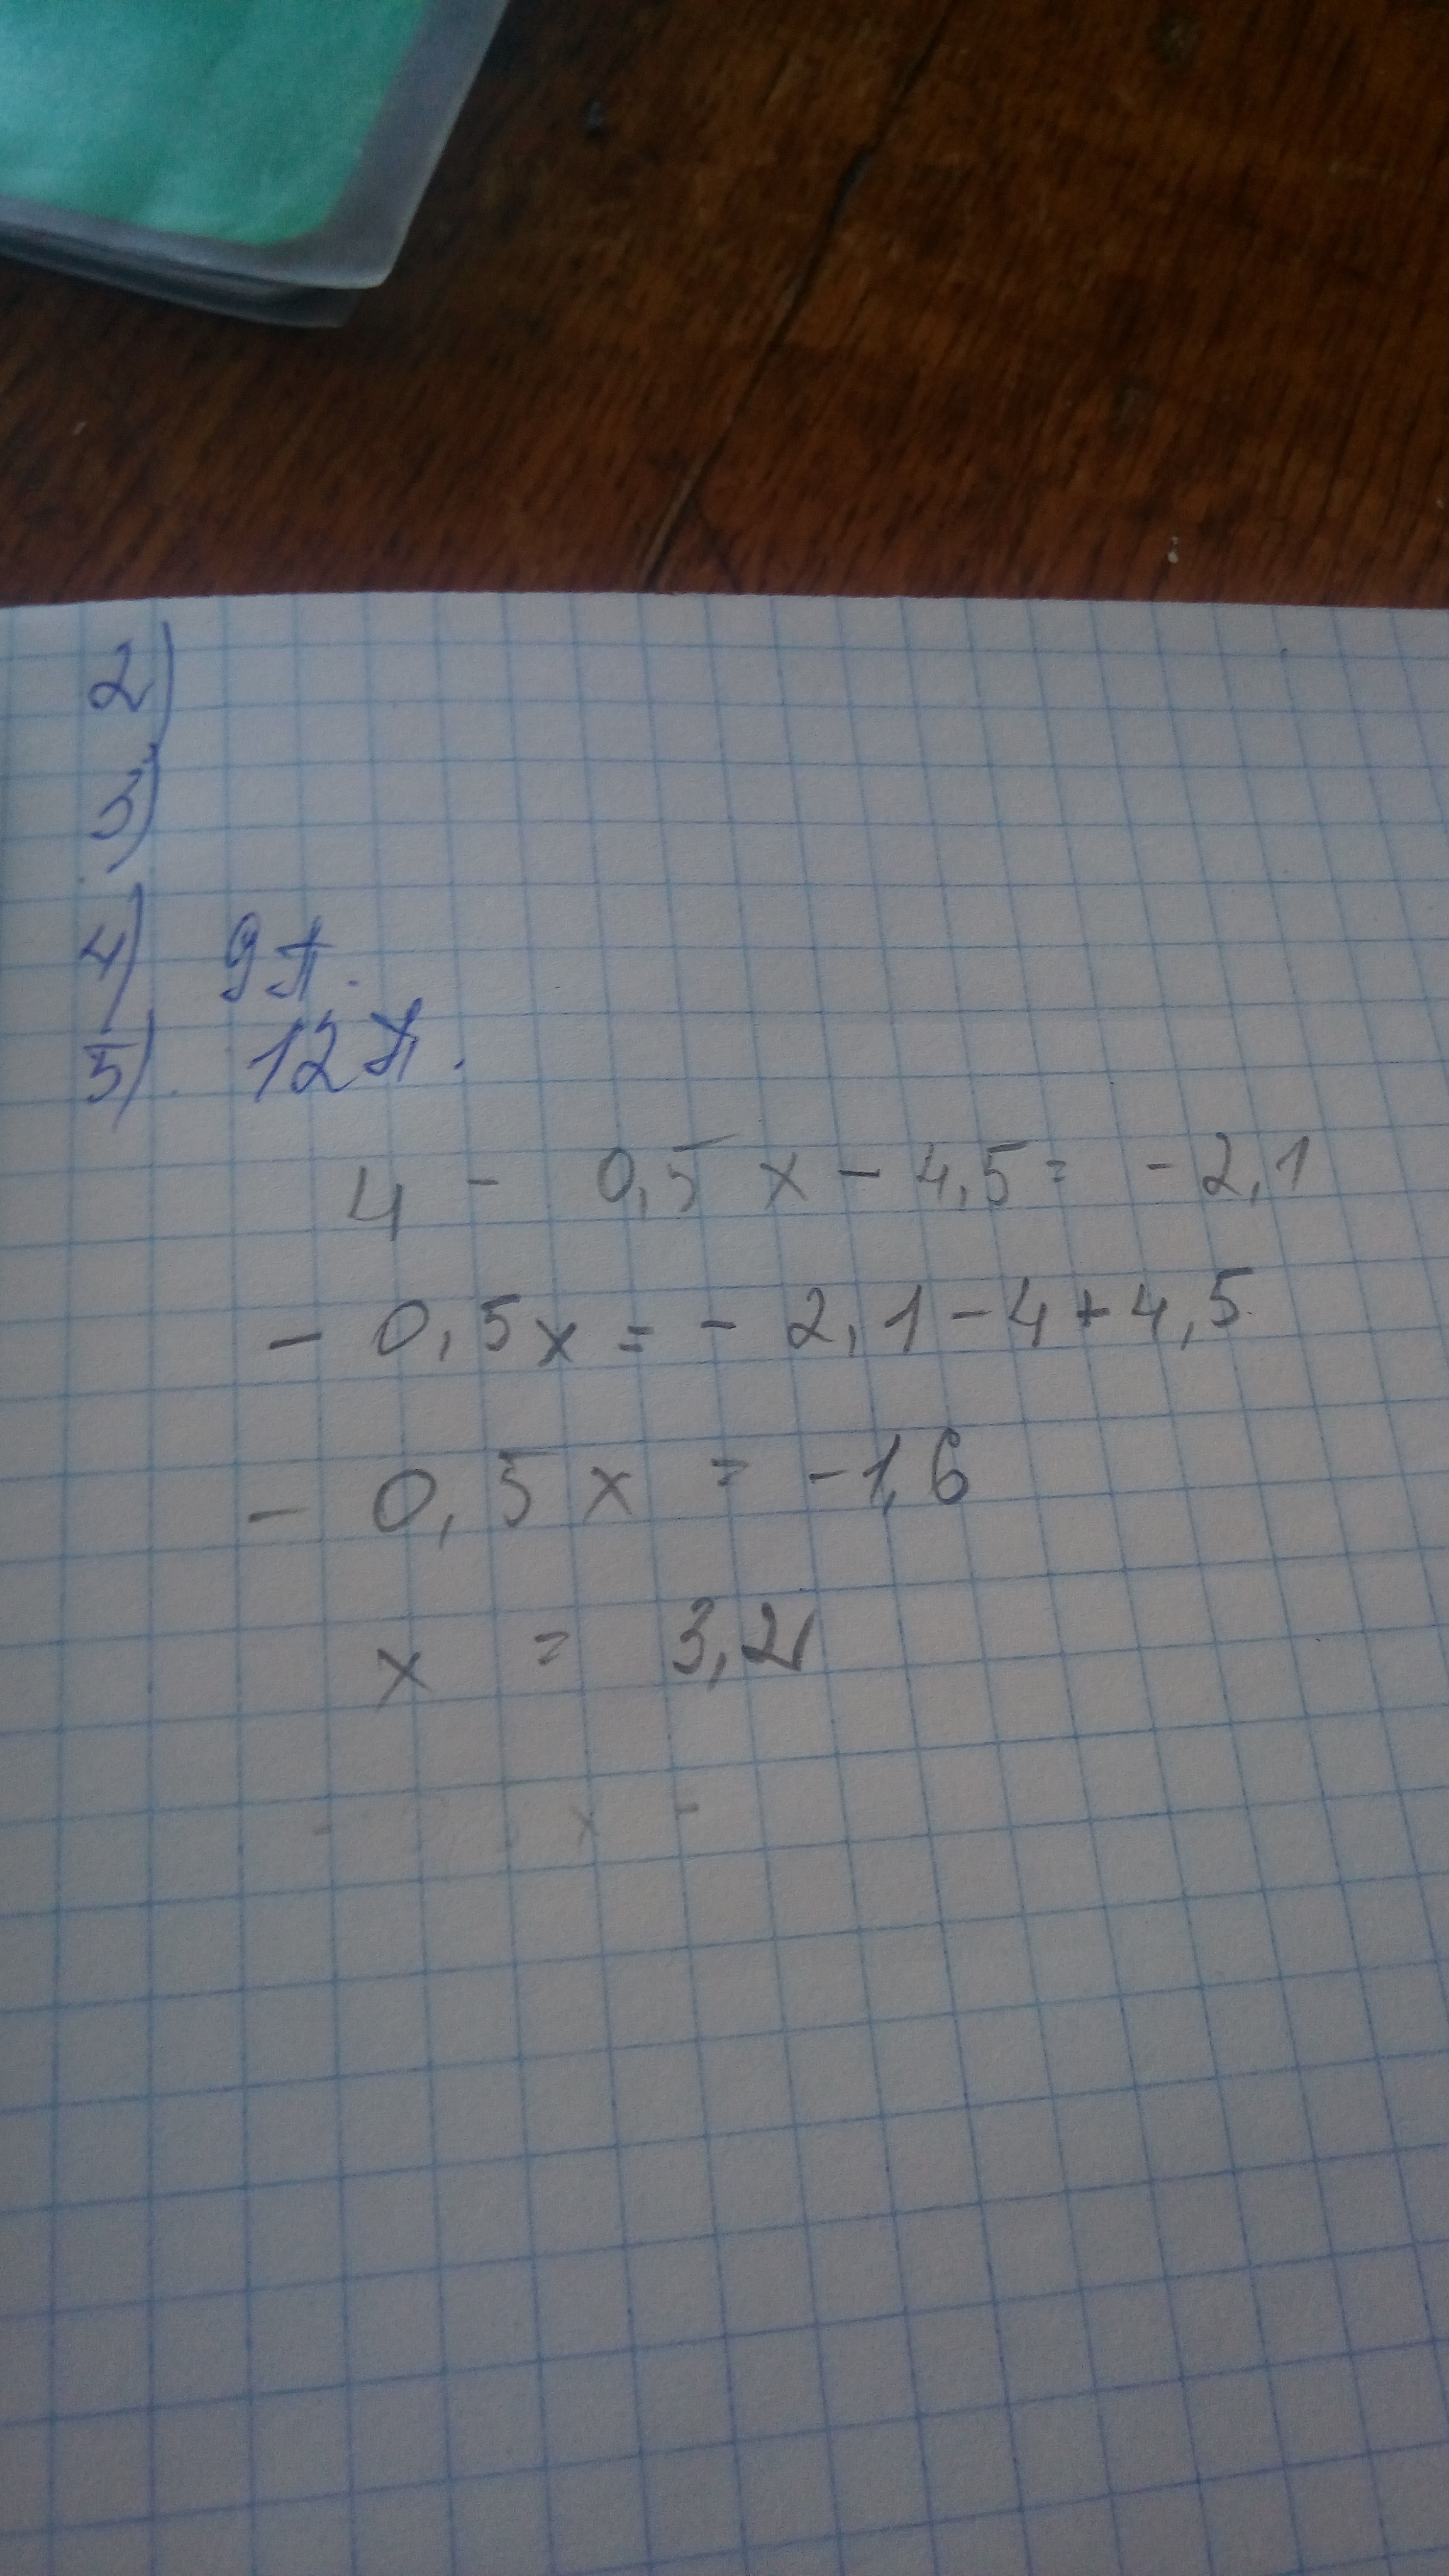 2)
3)
4) 9л.
5) 12л.
4 - 0,5 x - 4,5 = - 2,1
- 0,5x = - 2,1 - 4 + 4,5
- 0,5 x = -1,6
x = 3,2
x -